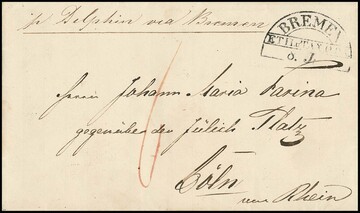 pr Delphin via Bremen
BREMEN
8. J.
Herrn Johann Maria Farina
gegenüber der Jülich Platz
Cöln
am Rhein